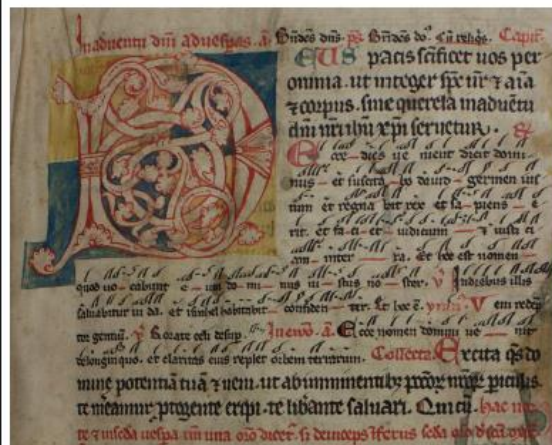 In adventu dñi ad vesꝑas. a. Bñdcs dñs. ps. Bñdcs do͛. cū reliqs. Capit̄.
EUS pacis scificet vos per
omnia. ut integer spc ur̄ ⁊ aīa
⁊ corpus. sine querela in advētu
dñi nr̄i ihū xp̄i servetur.
Ecce dies ve nient dicit domi
nus et suscita bo david germen ius
tum et regna bit rex et sa piens e
rit. et fa ci et iudicium ⁊ iusti ci
am inter ra. Et hoc est nomen
quod vo cabunt e um do mi nus iu stus no ster. v In diebus illis
salvabitur iu da. et israhel habitabit confiden ter. Et hoc ē. Veni redēp
tor gentiū. v Rorate celi desup. In evv̄. a. Ecce nomen domini ve nit
de longinquo. et claritas eius replet orbem terrarum. Collecta. Excita qs do
mine potentiā tuā ⁊ veni. ut ab imminentibꝫ pccōꝝ nr̄oꝝ piculis.
te meamur ptegente eripi. te libante salvari. Qui cū. hac